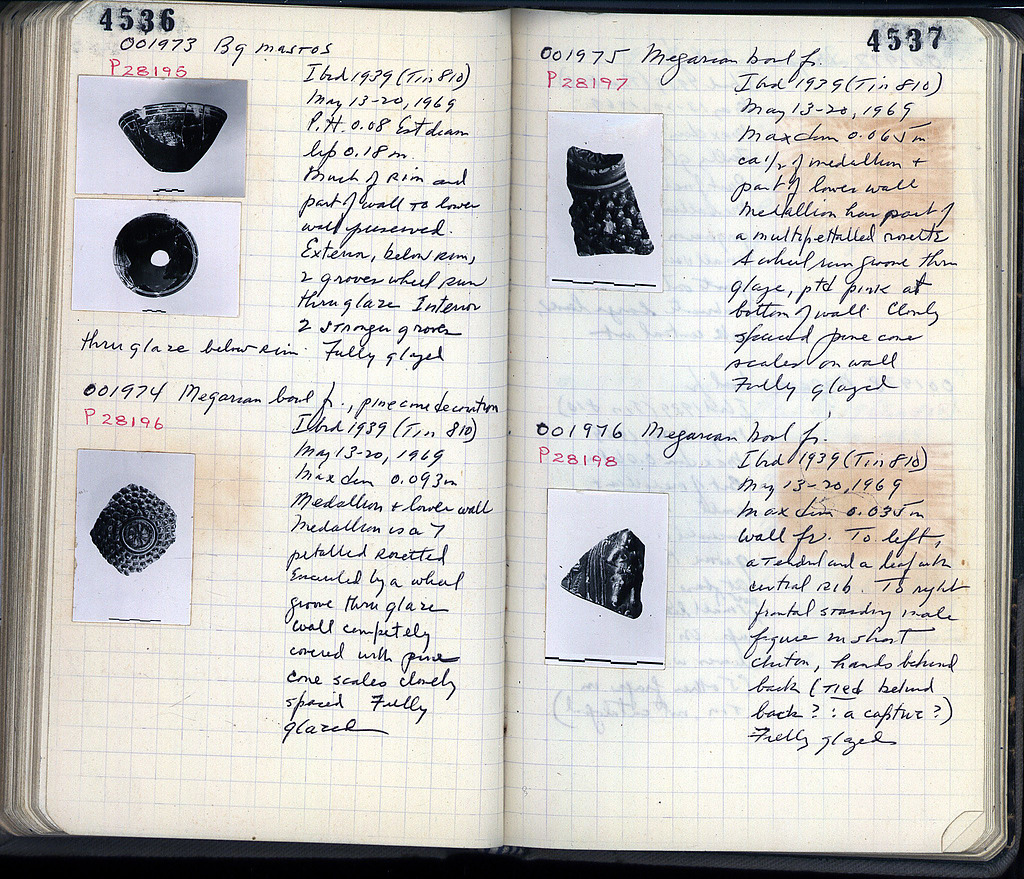 4536
001973 Bg mastos
P28195
Ibid 1939 (Tin 810)
May 13-20, 1969
P.H. 0.08 Est diam
lip 0.18 m.
Much of rim and
part of wall to lower
wall preserved.
Exterior, below rim,
2 groves wheel run
thru glaze Interior
2 stronger groves
thru glaze below rim. Fully glazed
001974 Megarian bowl fr., pine cone decoration
P28196
Ibid 1939 (Tin 810)
May 13-20, 1969
Max dim 0.093m
Medallion + lower wall
Medallion is a 7
petalled rosetted
Encircled by a wheel
groove thru glaze
wall completely
covered with pine
cone scales closely
spaced Fully
glazed
4537
001975 Megarian bowl fr.
P28197
Ibid 1939 (Tin 810)
May 13-20, 1969
Max dim 0.065m
ca 1/2 of medallion +
part of lower wall
Medallion has part of
a multipettalled rosette
A wheel run groove thru
glaze, ptd pink at
bottom of wall. Closely
spaced pine cone
scales on wall
Fully glazed
001976 Megarian bowl fr.
P28198
Ibid 1939 (Tin 810)
May 13-20, 1969
Max dim 0.035m
wall fr. To left,
a tendril and a leaf with
central rib. To right
frontal standing male
figure in short
chiton, hands behind
back (tied behind
back? : a captive?)
Fully glazed